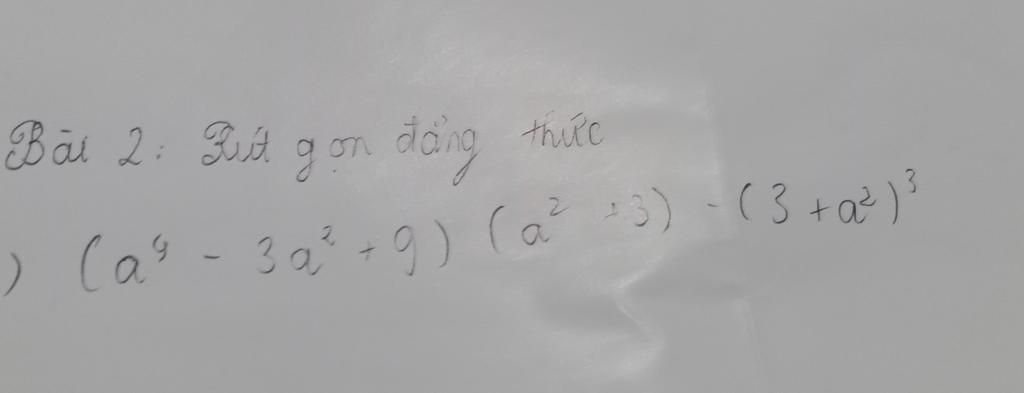 Bài 2: Rút gọn đẳng thức
) (a⁴ - 3a² + 9) (a² + 3) - (3 + a²)³